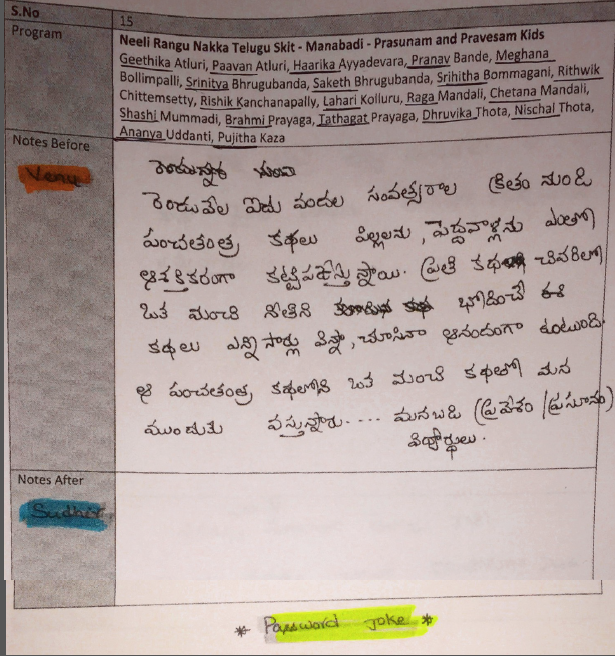 S.No
15
Program
Neeli Rangu Nakka Telugu Skit - Manabadi - Prasunam and Pravesam Kids
Geethika Atluri, Paavan Atluri, Haarika Ayyadevara, Pranav Bande, Meghana
Bollimpalli, Srinitya Bhrugubanda, Saketh Bhrugubanda, Srihitha Bommagani, Rithwik
Chittemsetty, Rishik Kanchanapally, Lahari Kolluru, Raga Mandali, Chetana Mandali,
Shashi Mummadi, Brahmi Prayaga, Tathagat Prayaga, Dhruvika Thota, Nischal Thota,
Ananya Uddanti, Pujitha Kaza
Notes Before
Venu
రెండువేల ఐదు వందల సంవత్సరాల క్రితం నుండి
పంచతంత్ర కథలు పిల్లలను, పెద్దవాళ్లను ఎంతో
ఆశక్తికరంగా కట్టిపడేస్తున్నాయి. ప్రతి కథ చివరిలో
ఒక మంచి నీతిని భోదించే ఈ
కథలు ఎన్ని సార్లు విన్నా, చూసినా ఆనందంగా ఉంటుంది.
ఆ పంచతంత్ర కథలలోని ఒక మంచి కథతో మన
ముందుకు వస్తున్నారు.... మనబడి (ప్రవేశం/ప్రసూనం)
విద్యార్థులు.
Notes After
Sudhir
* Password Joke *